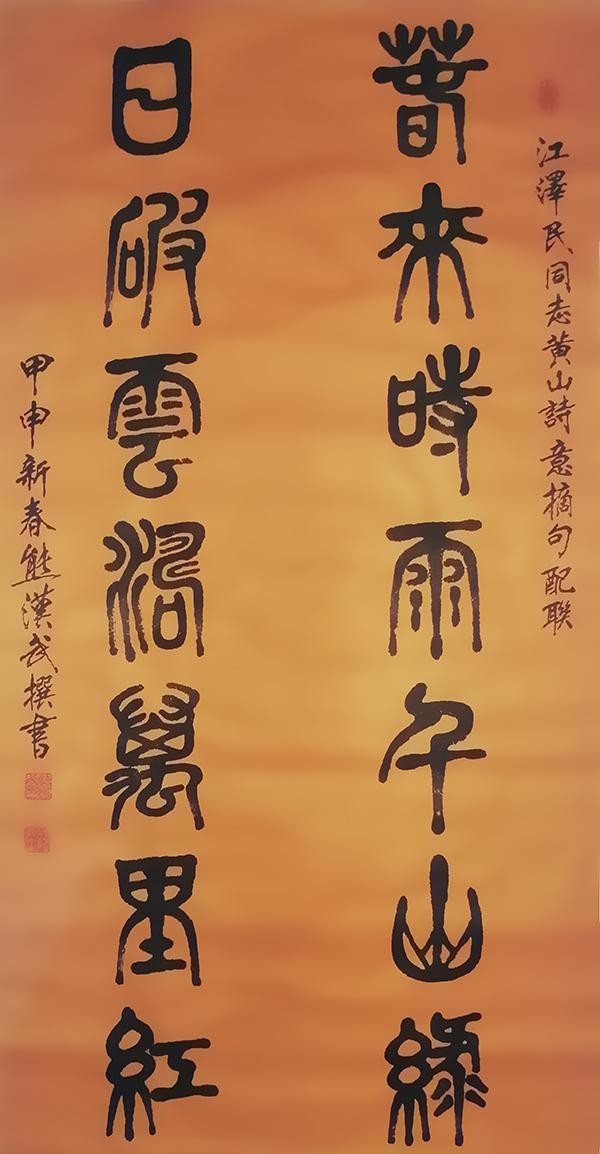 江澤民同志黄山詩意摘句配聯
春來時雨千山綠
日破雲濤萬里紅
甲申新春熊漢武撰書